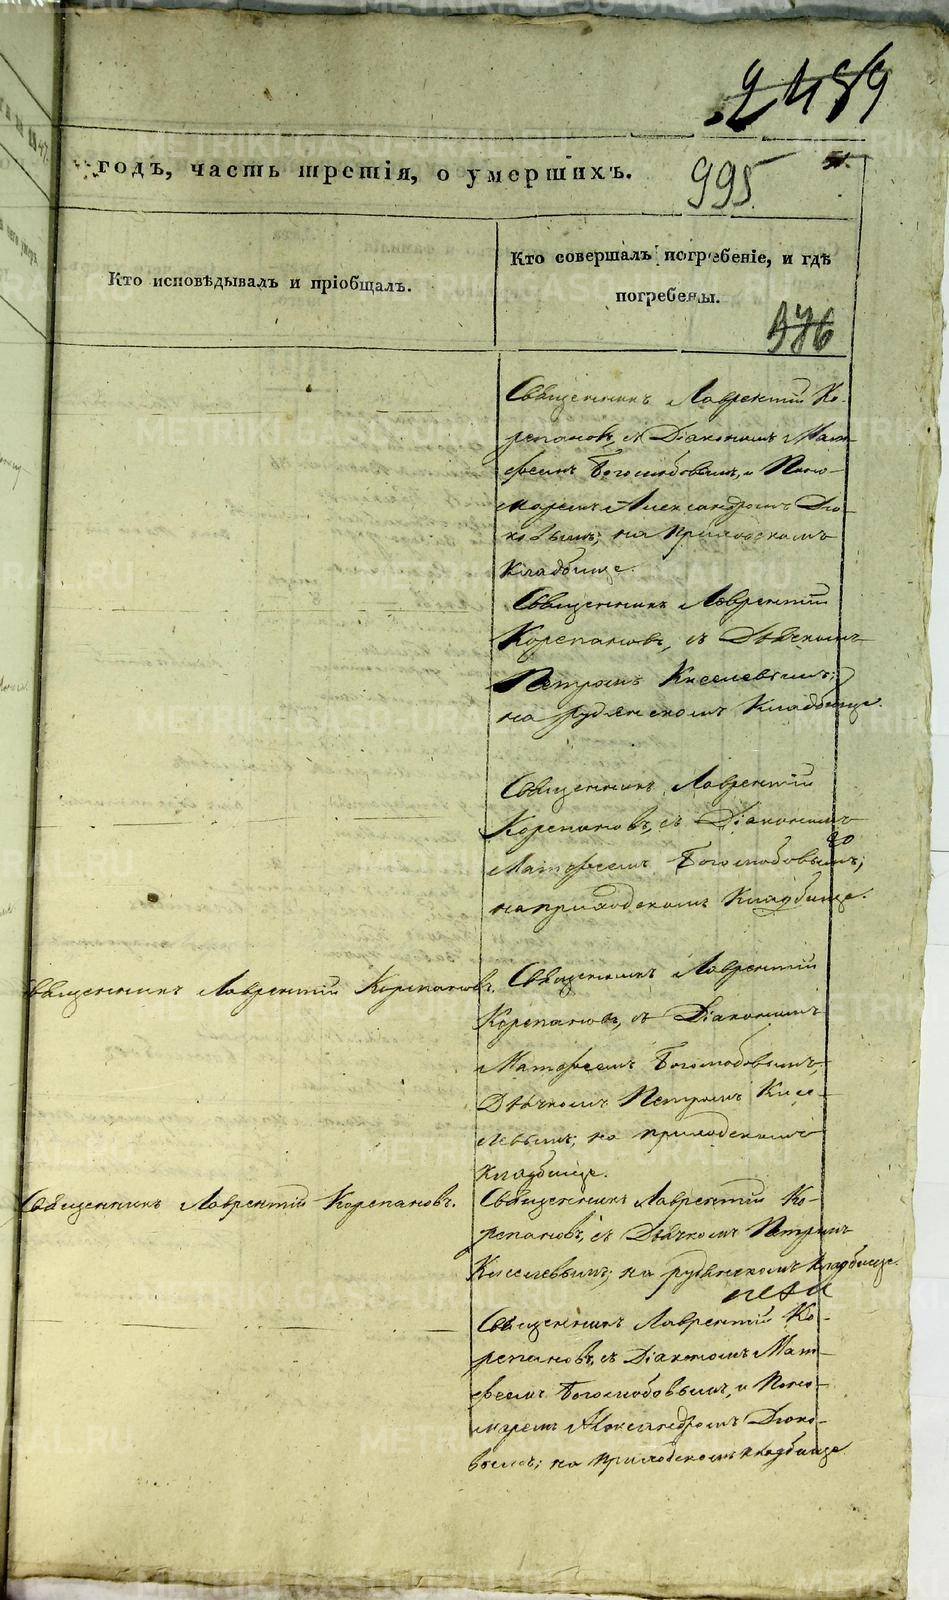 2489
годъ, часть третія, о умершихъ.
995
Кто исповѣдывалъ и пріобщалъ.
Кто совершалъ погребеніе, и гдѣ
погребены.
976
Священникъ Лаврентій Ко-
репановъ, съ Діакономъ Мат-
феемъ Боголюбовымъ, и Поно-
маремъ Александромъ
на Приходскомъ
Кладбище.
Священникъ Лаврентій
Корепановъ, съ Дьячкомъ
Петромъ Киселевымъ;
на рудянскомъ Кладбище.
Священникъ Лаврентій
Корепановъ, съ Діакономъ
Матфеемъ Боголюбовымъ;
на приходскомъ Кладбище.
Священникъ Лаврентій Корепановъ.
Священникъ Лаврентій
Корепановъ, съ Діакономъ
Матфеемъ Боголюбовымъ,
Дьячкомъ Петромъ Кисе-
левымъ; на приходскомъ
кладбище.
Священникъ Лаврентій Корепановъ.
Священникъ Лаврентій Ко-
репановъ, съ Дьячкомъ Петромъ
Киселевымъ; на рудянскомъ кладбище.
Священникъ Лаврентій Ко-
репановъ, съ Діакономъ Мат-
феемъ Боголюбовымъ, и Поно-
маремъ Александромъ
на приходскомъ кладбище
METRIKI.GASO-URAL.RU